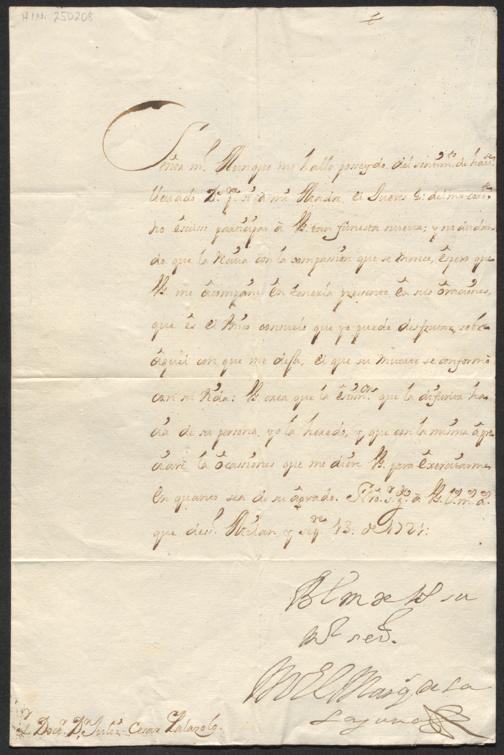 HIN: 250208
Señor mio Aunque me hallo poseydo del sentim.to de haver
llevado D.s p.a si a mi Madre, el Jueves de mes
no escuso participar a Vs. tan funesta nueva; y no dudan-
do que la con la compasion que se merece, espero que
Vs. me acompañe en tenerla presente en sus oraciones,
que es el unico consuelo que yo puedo disfrutar, sobre
aquel con que me dexa, el que su muerte se conformo
con su vida: Vs. crea que la estim.on que la difunta ha-
cia de su persona, yo la heredo, y que con la misma apre-
ciare las ocasiones que me diere Vs. para exercitarme
en quanto sea de su agrado. N.ro S.r g.e a Vs. m.s a.s
que des.o Milan, y 13. de 1721.
BLM de Vs. su
m.r ser.
El Marq. de la
Laguna
S. Doct. D.n Julio Cesar